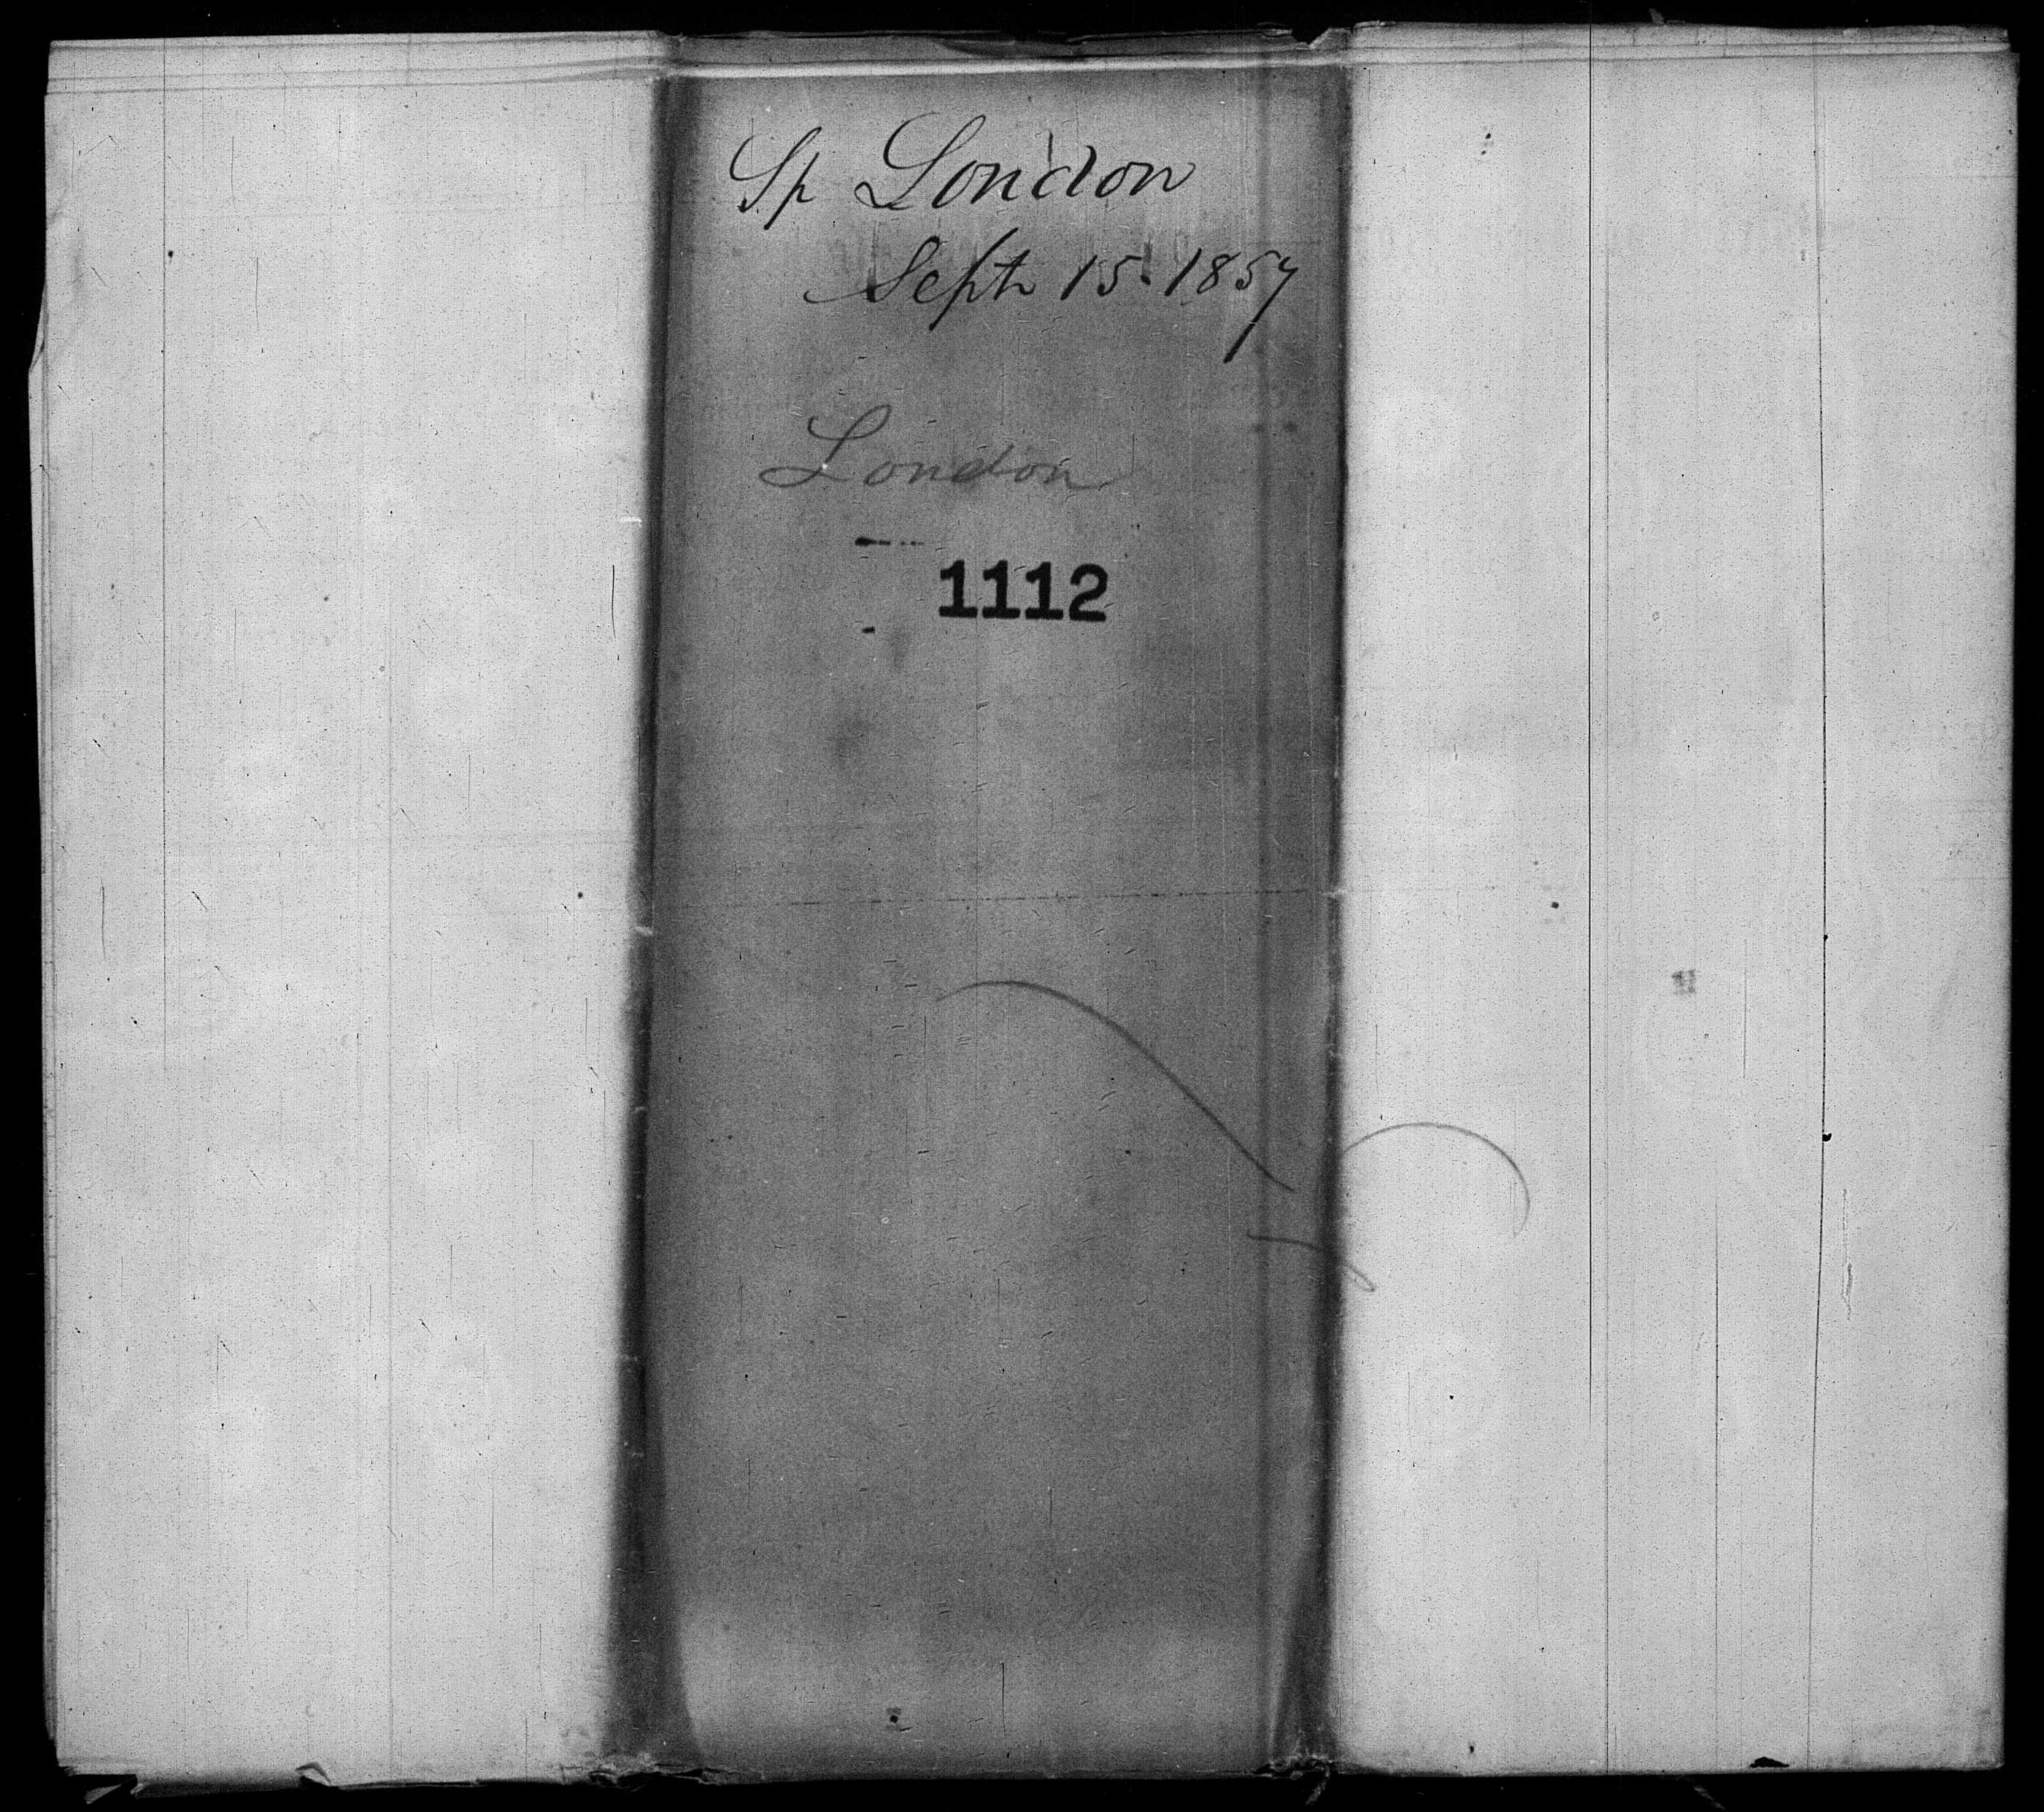 Sp London
Sept 15. 1857
London
1112